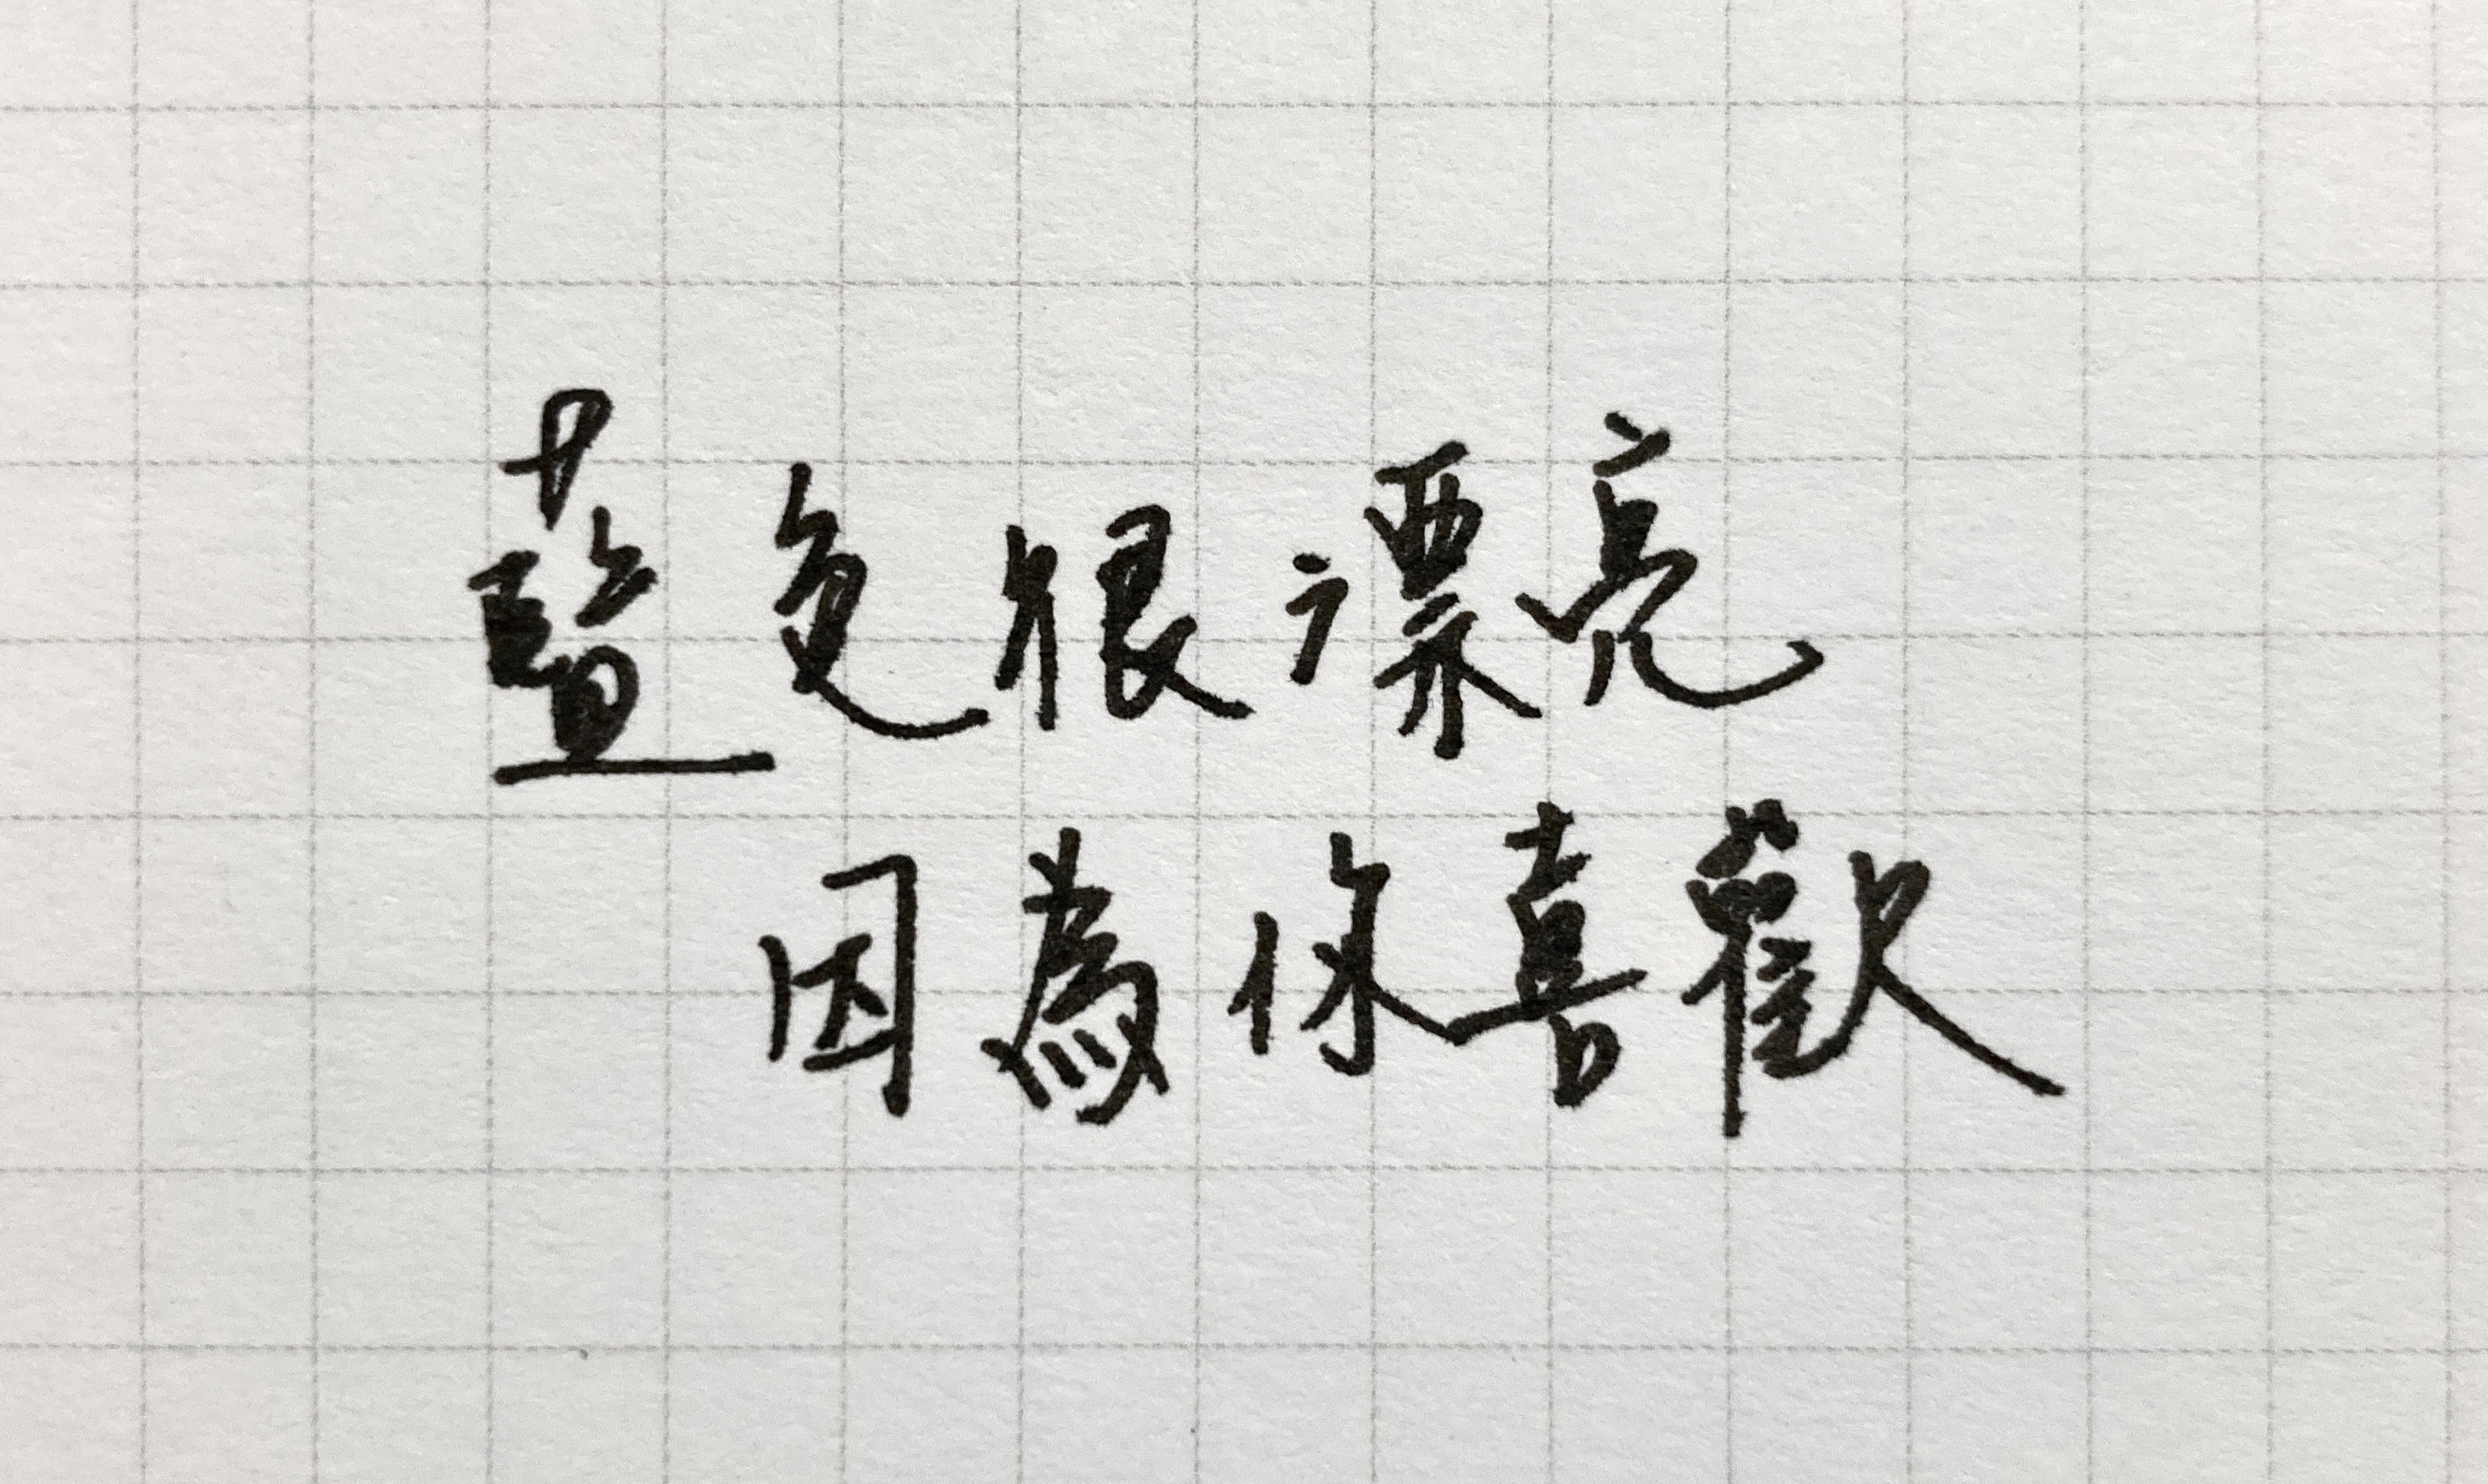 藍色很漂亮
因為你喜歡